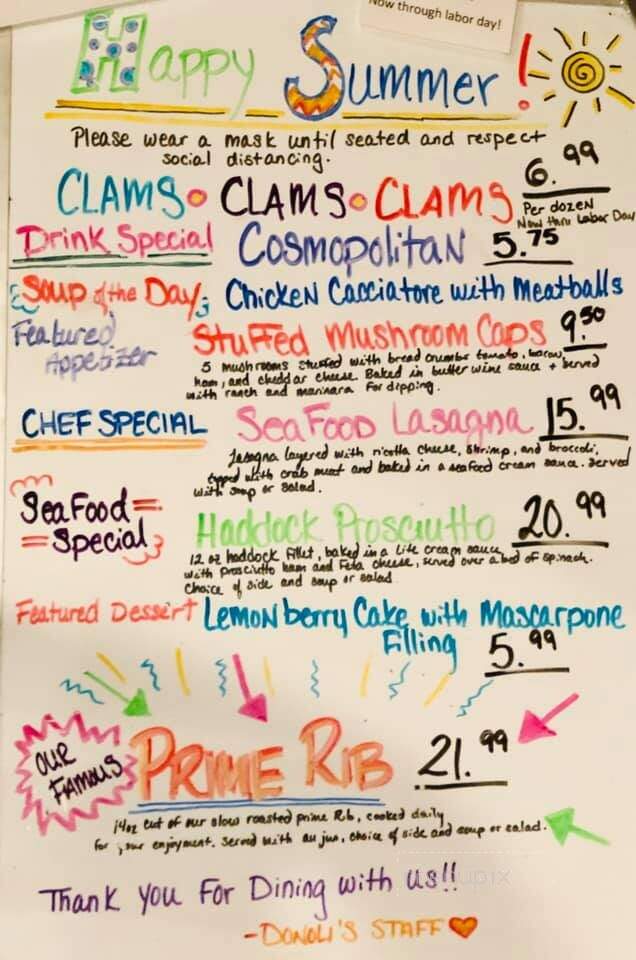 Now through labor day!
Happy Summer!
Please wear a mask until seated and respect
social distancing.
CLAMS • CLAMS • CLAMS 6.99
Per dozen
Now thru Labor Day
Drink Special Cosmopolitan 5.75
Soup of the Day; Chicken Cacciatore with Meatballs
Featured Appetizer Stuffed Mushroom Caps 9.50
5 mushrooms stuffed with bread crumbs tomato, bacon,
ham, and cheddar cheese. Baked in butter wine sauce + served
with ranch and marinara for dipping.
CHEF SPECIAL SeaFood Lasagna 15.99
Lasagna layered with ricotta cheese, shrimp, and broccoli,
topped with crab meat and baked in a seafood cream sauce. Served
with soup or salad.
SeaFood Special Haddock Prosciutto 20.99
12 oz haddock fillet, baked in a lite cream sauce
with prosciutto ham and Feta cheese, served over a bed of spinach.
Choice of side and soup or salad
Featured Dessert Lemon berry Cake with Mascarpone
Filling 5.99
OUR FAMOUS PRIME RIB 21.99
14oz cut of our slow roasted prime Rib, cooked daily
for your enjoyment. Served with au jus, choice of side and soup or salad.
Thank You For Dining with us!!
-DONOLI'S STAFF ♥